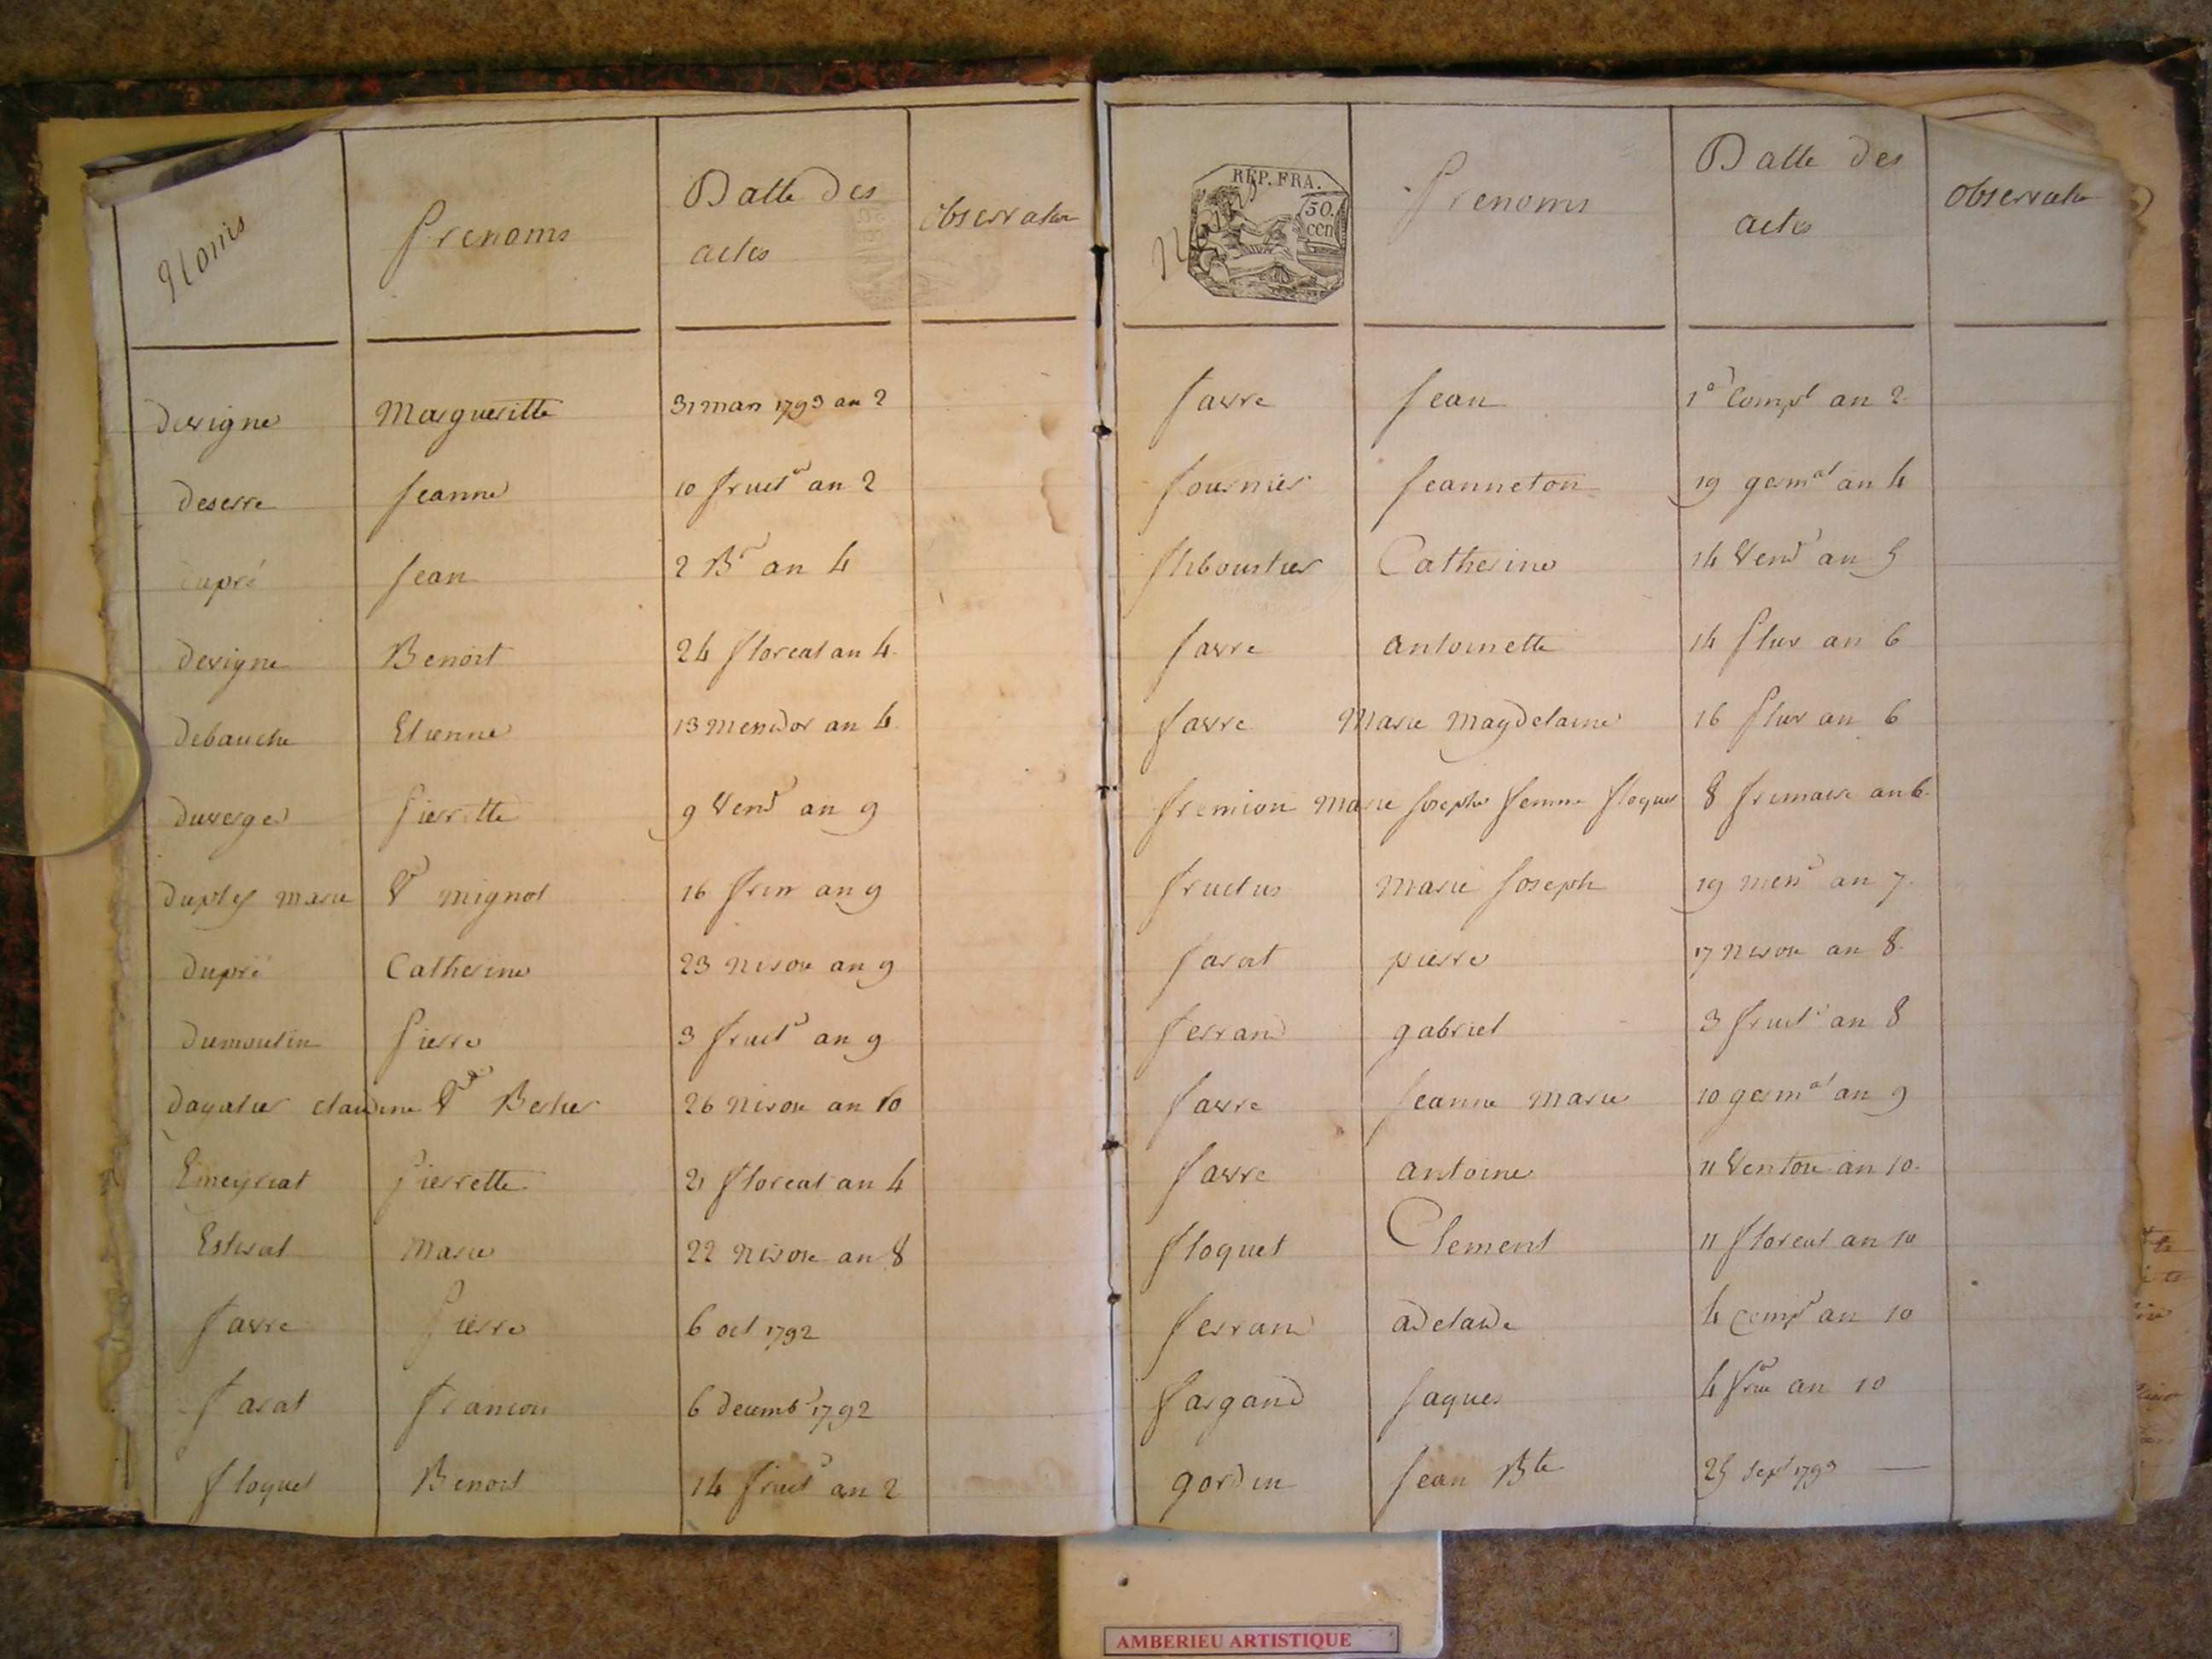 Noms Prenoms Datte des actes observation
devigne Margueritte 31 mars 1793 an 2
deserre Jeanne 10 fruct^r an 2
dupré Jean 2 B^r an 4
devigne Benoit 24 floreal an 4
debauche Etienne 13 Messidor an 4
duverger Pierrette 9 Vend^r an 9
Marie V^e mignot 16 frim an 9
dupré Catherine 23 nivose an 9
dumoulin Pierre 3 fruct^r an 9
dagalier claudine V^ve 26 nivose an 10
Emeyriat Pierrette 21 floreal an 4
Estivat Marie 22 nivose an 8
favre Pierre 6 oct 1792
farat francois 6 decemb^r 1792
floquet Benoit 14 fruct^r an 2
REP. FRA.
50. cen
Prenoms Datte des actes observation
favre Jean 1^e Comp^t an 2
fournier Jeanneton 19 germ^al an 4
fliboustier Catherine 14 Vend^r an 5
favre antoinette 14 pluv an 6
favre Marie Magdelaine 16 pluv an 6
fremion Marie Josephe femme floquet 8 frimaire an 6
fructus Marie Joseph 19 mess^r an 7
farat pierre 17 nivose an 8
ferrand gabriel 3 fruct^r an 8
favre Jeanne Marie 10 germ^al an 9
favre antoine 11 Ventose an 10
floquet Clement 11 floreal an 10
ferrand adelaide 4 comp^r an 10
fargand Jaques 4 an 10
gordin Jean Bte 25 sept 1793
AMBERIEU ARTISTIQUE